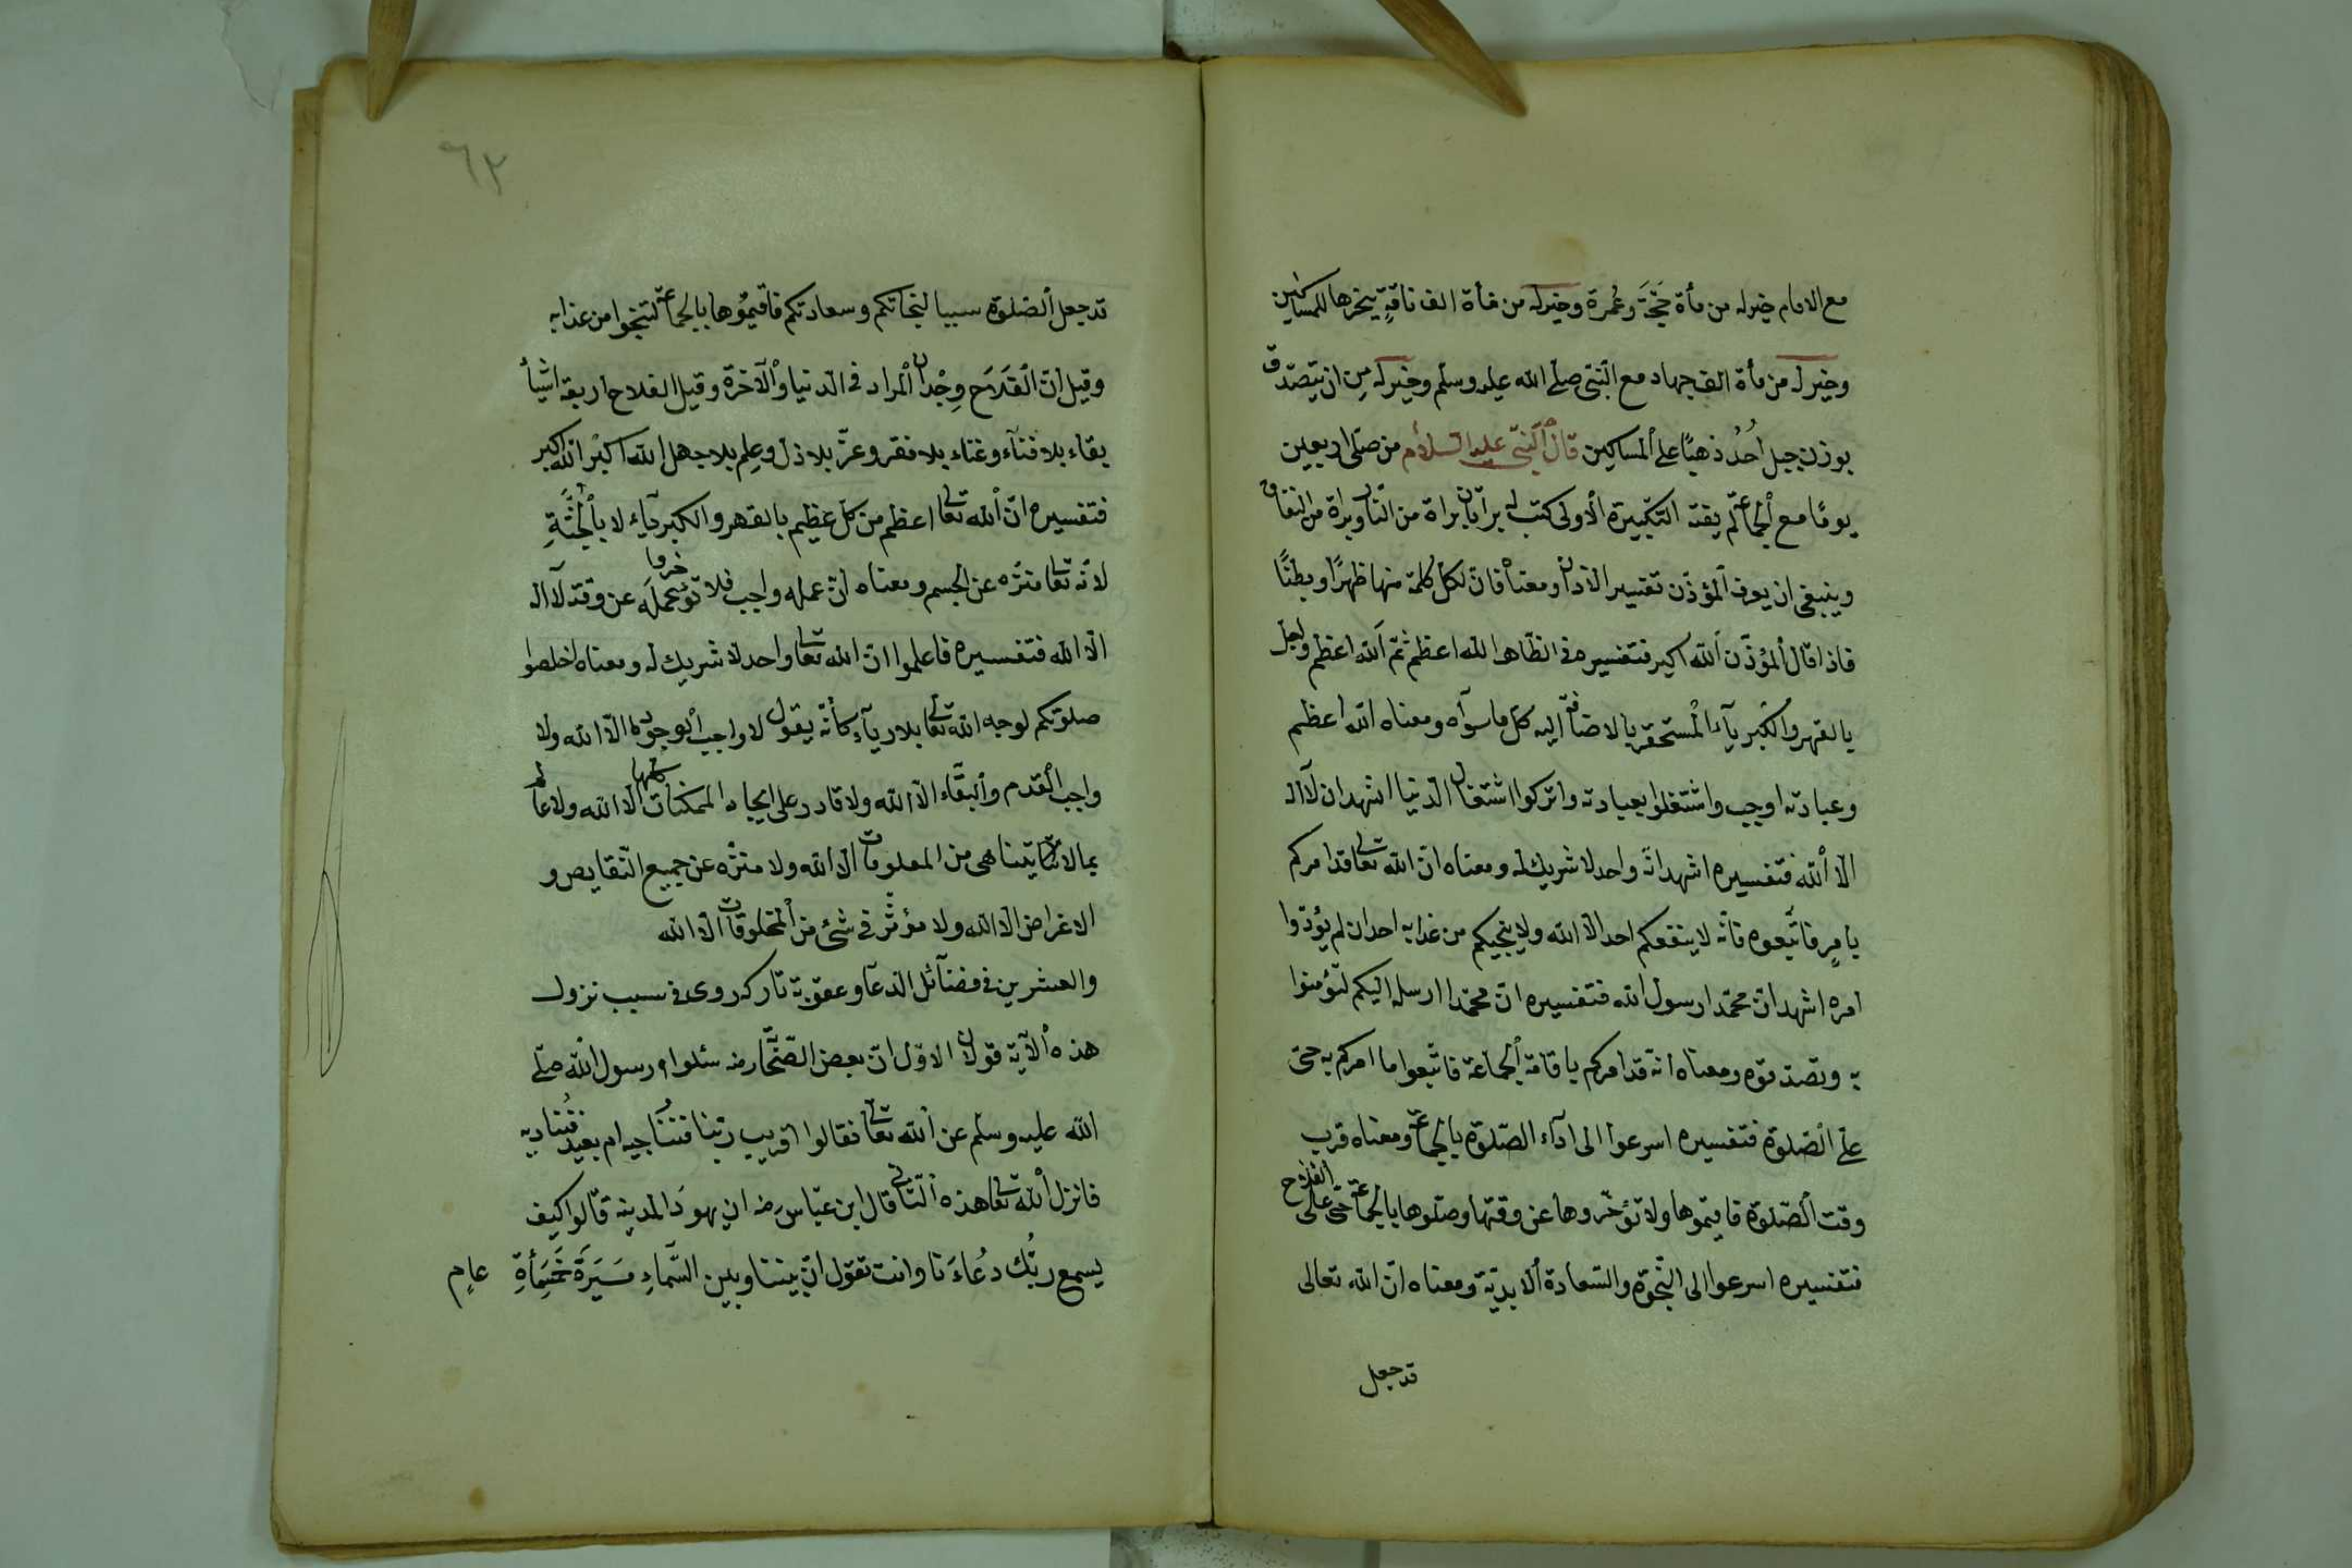 مع الامام خيرله من مأة حَجَّةَ وعُمرة وخيرله من مأة الف ناقةٍ ينحرها للمساكين
وخيرله من مأة الف جهاد مع النّبىّ صلى الله عليه وسلم وخيرله مِن ان يتصدّق
بوزن جبل اُحُدُ ذهبًا على المساكين قال النّبىّ عليه السلام من صلى اربعين
يومًا مع الجماعة لم يفته التكبيرة الاولى كتب له برأتان براة من النار وبراة من النفاق
وينبغى ان يعرف المؤذّن تفسير الاذان ومعناه فانّ لكلّ كلمة منها ظهرًا وبطنًا
فاذا قال المؤذّن اَلله اكبر فتفسيره فى الظّاهر الله اعظم ثمّ اَلله اعظم واجلّ
بالقهر والكبرياء المستحقر بالاضافة اليه كلّ ما سوآه ومعناه الله اعظم
وعبادته اوجب واشتغلوا بعبادته واتركوا اشتغال الدنيا اشهد ان لآاله
الّا الله فتفسيره اشهد انّه واحد لا شريك له ومعناه انّ الله تعالى قد امركم
بامرٍ فاتّبعوه فانّه لا ينفعكم احد الّا الله ولا ينجيكم من عذابه احد ان لم يؤدّوا
امره اشهد انّ محمّدا رسول الله فتفسيره انّ محمّدا ارسله اليكم لتؤمنوا
به وتصدّقوه ومعناه انّه قد امركم باقامة الجماعة فاتّبعوا ما امركم به حىّ
على الصّلوة فتفسيره اسرعوا الى ادآء الصّلوة بالجماعة ومعناه قرب
وقت الصّلوة فاقيموها ولا تؤخّروها عن وقتها وصلّوها بالجماعة حىّ على الفلاح
فتفسيره اسرعوا الى النّجوة والسّعادة الابديّة ومعناه انّ الله تعالى
قد جعل
٦٢
قد جعل الصّلوة سببا لنجاتكم وسعادتكم فاقيمُوها بالجماعة لتنجوا من عذابه
وقيل انّ الْفَلَاحَ وِجْدان المراد فى الدنيا والآخرة وقيل الفلاح اربعة اشيأ
بقاء بلا فنآء وغناء بلا فقر وعزّ بلا ذل وعِلم بلا جهل الله اكبر الله اكبر
فتفسيره انّ الله تعالى اعظم من كلّ عظيم بالقهر والكبريآء لا بالْجُثَّةِ
لانّه تعالى منزّه عن الجسم ومعناه انّ عمله واجب فلا تؤخروا عمله عن وقته لآاله
الّا الله فتفسيره فاعلموا انّ الله تعالى واحد لا شريك له ومعناه اخلصوا
صلوتكم لوجه الله تعالى بلا ريآء كأنّه يقول لا واجب الوجود الّا الله ولا
واجب القدم والبقاء الّا الله ولا قادر على ايجاد الممكنات كلها الّا الله ولا عالم
بما لا يتناهى من المعلومات الّا الله ولا منزّه عن جميع النّقايص و
الاغراض الّا الله ولا مؤثّر فى شئ من المخلوقات الّا الله
والعشرين فى فضآئل الدّعآ وعقوبة تاركه روى فى سبب نزول
هذه الآية قولان الاوّل انّ بعض الصّحّابه رضـ سئلوا رسول الله صلّى
الله عليه وسلّم عن الله تعالى فقالوا اقريب ربّنا فنناجيه ام بعيد فنُناديه
فانزل الله تعالى هذه الثانى قال ابن عبّاس رضـ ان يهودَ المدينه قالوا كيف
يسمع ربُّك دُعاءَنا وانت تقول انّ بيننا وبين السّماءِ مَسِيَرَةَ خَمِسَمِأةِ عامٍ